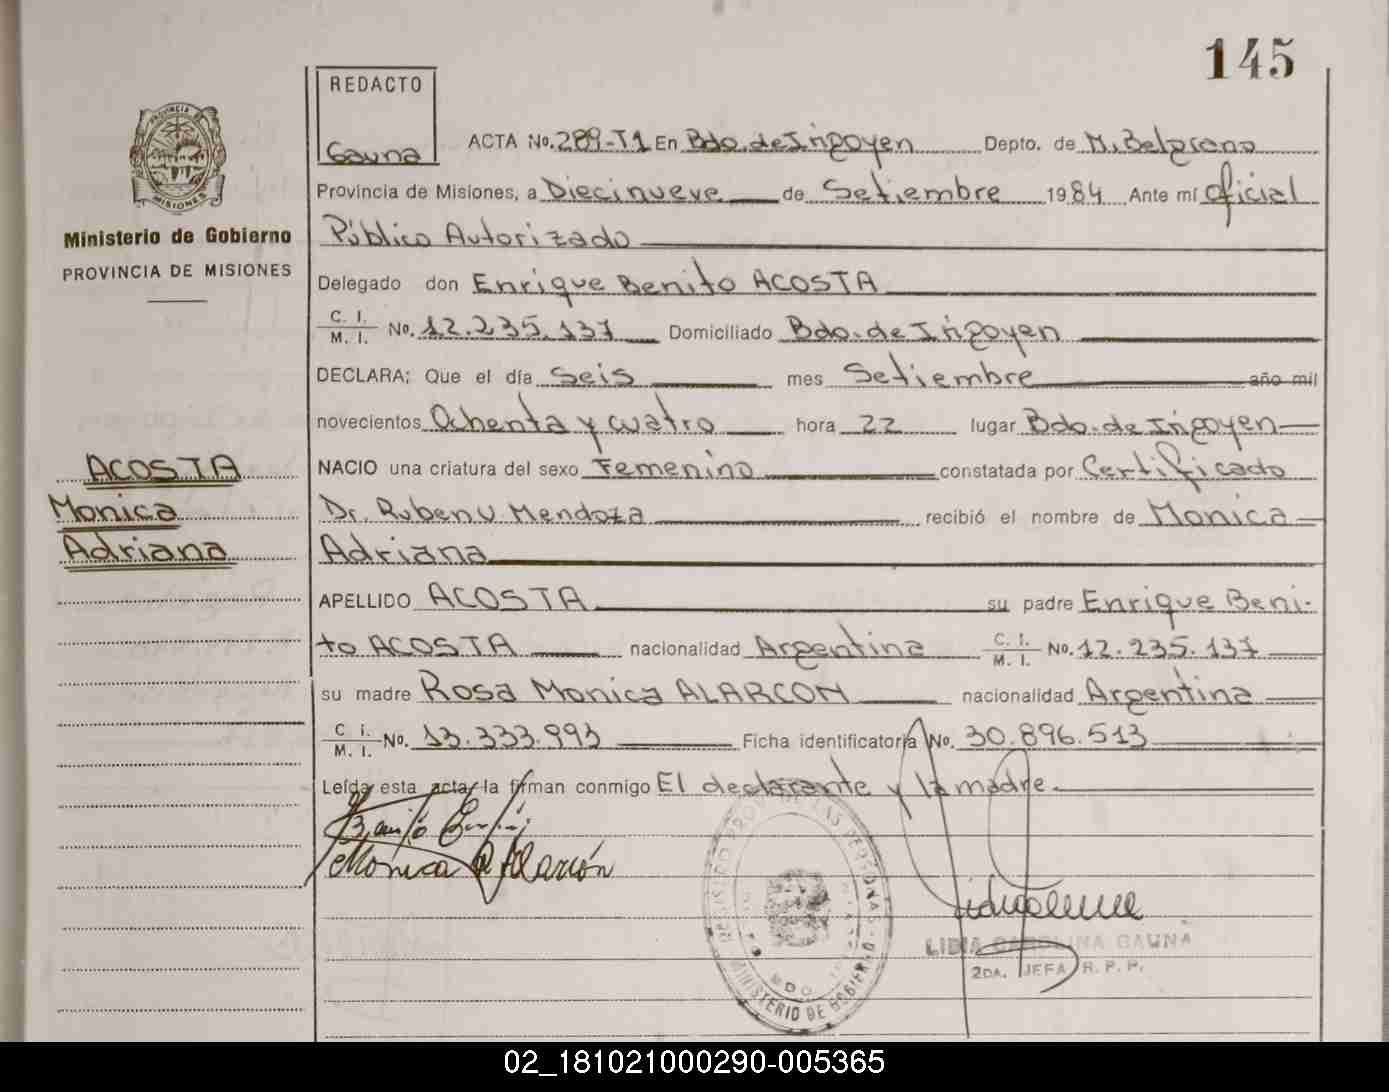 145
REDACTO
Gauna
ACTA No. 289-T1 En Bdo. de Irigoyen Depto. de M. Belgrano
Provincia de Misiones, a Diecinueve de Setiembre 1984 Ante mí Oficial
Público Autorizado
Delegado don Enrique Benito ACOSTA
C. I.
M. I. No. 12.235.137 Domiciliado Bdo. de Irigoyen
DECLARA; Que el día Seis mes Setiembre año mil
novecientos Ochenta y cuatro hora 22 lugar Bdo. de Irigoyen
NACIO una criatura del sexo Femenino constatada por Certificado
Dr. Ruben V. Mendoza recibió el nombre de Monica
Adriana
APELLIDO ACOSTA su padre Enrique Beni-
to ACOSTA nacionalidad Argentina C. I. M. I. No. 12.235.137
su madre Rosa Monica ALARCON nacionalidad Argentina
C. I.
M. I. No. 13.333.993 Ficha identificatoria No. 30.896.513
Leída esta acta la firman conmigo El declarante y la madre.
Mónica R Alarcón
LIDIA CAROLINA GAUNA
2DA. JEFA R. P. P.
PROVINCIA DE
MISIONES
Ministerio de Gobierno
PROVINCIA DE MISIONES
ACOSTA
Monica
Adriana
MINISTERIO DE GOBIERNO
02_181021000290-005365